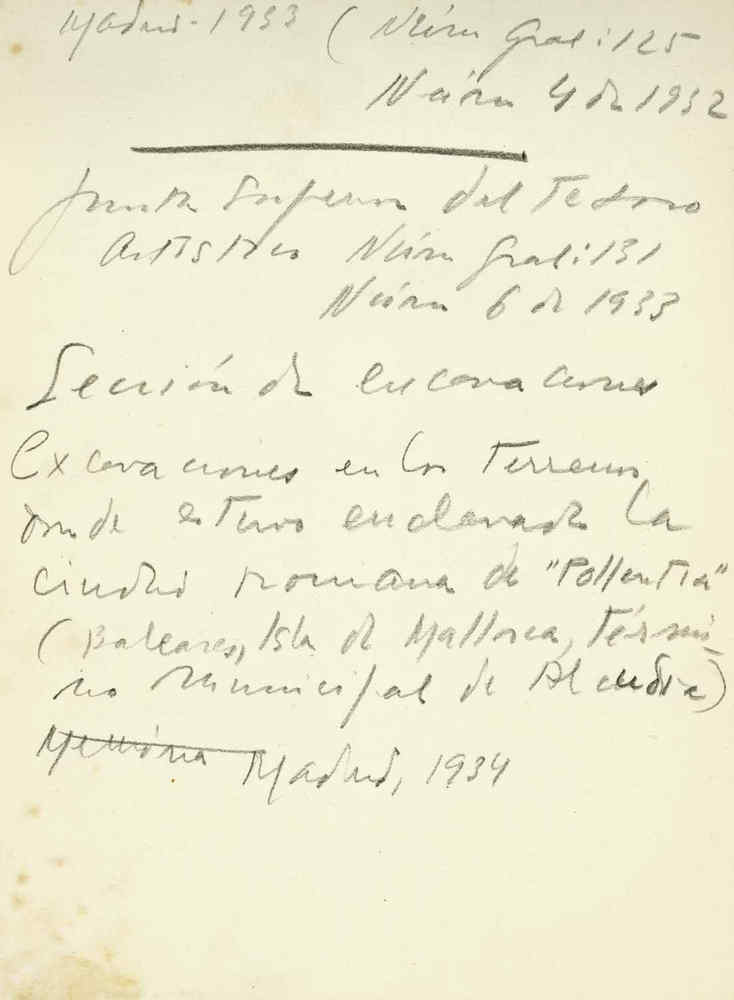 Madrid-1933 (Núm Gral: 125
Núm 4 de 1932
Junta Superior del Tesoro
Artístico Núm Gral: 131
Núm 6 de 1933
Sección de excavaciones
Excavaciones en los terrenos
donde estuvo enclavada la
ciudad romana de "Pollentia"
(Baleares, Isla de Mallorca, Térmi
no Municipal de Alcudia)
Memoria Madrid, 1934